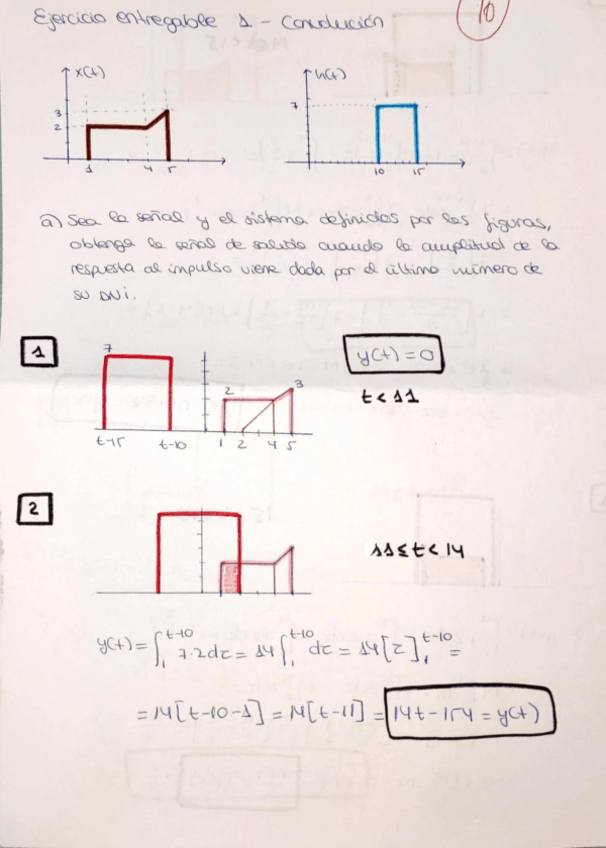 Ejercicio entregable 1 - Convolución
10
x(t)
3
2
1 4 5
h(t)
7
10 15
a) Sea la señal y el sistema definidos por las figuras,
obtenga la señal de salida cuando la amplitud de la
respuesta al impulso viene dada por el último número de
su DNI.
1
7
t-15 t-10
2 3
1 2 4 5
y(t) = 0
t < 11
2
11 ≤ t < 14
y(t) = ∫₁^{t-10} 7·2dτ = 14 ∫₁^{t-10} dτ = 14 [τ]₁^{t-10} =
= 14[t-10-1] = 14[t-11] = 14t-154 = y(t)